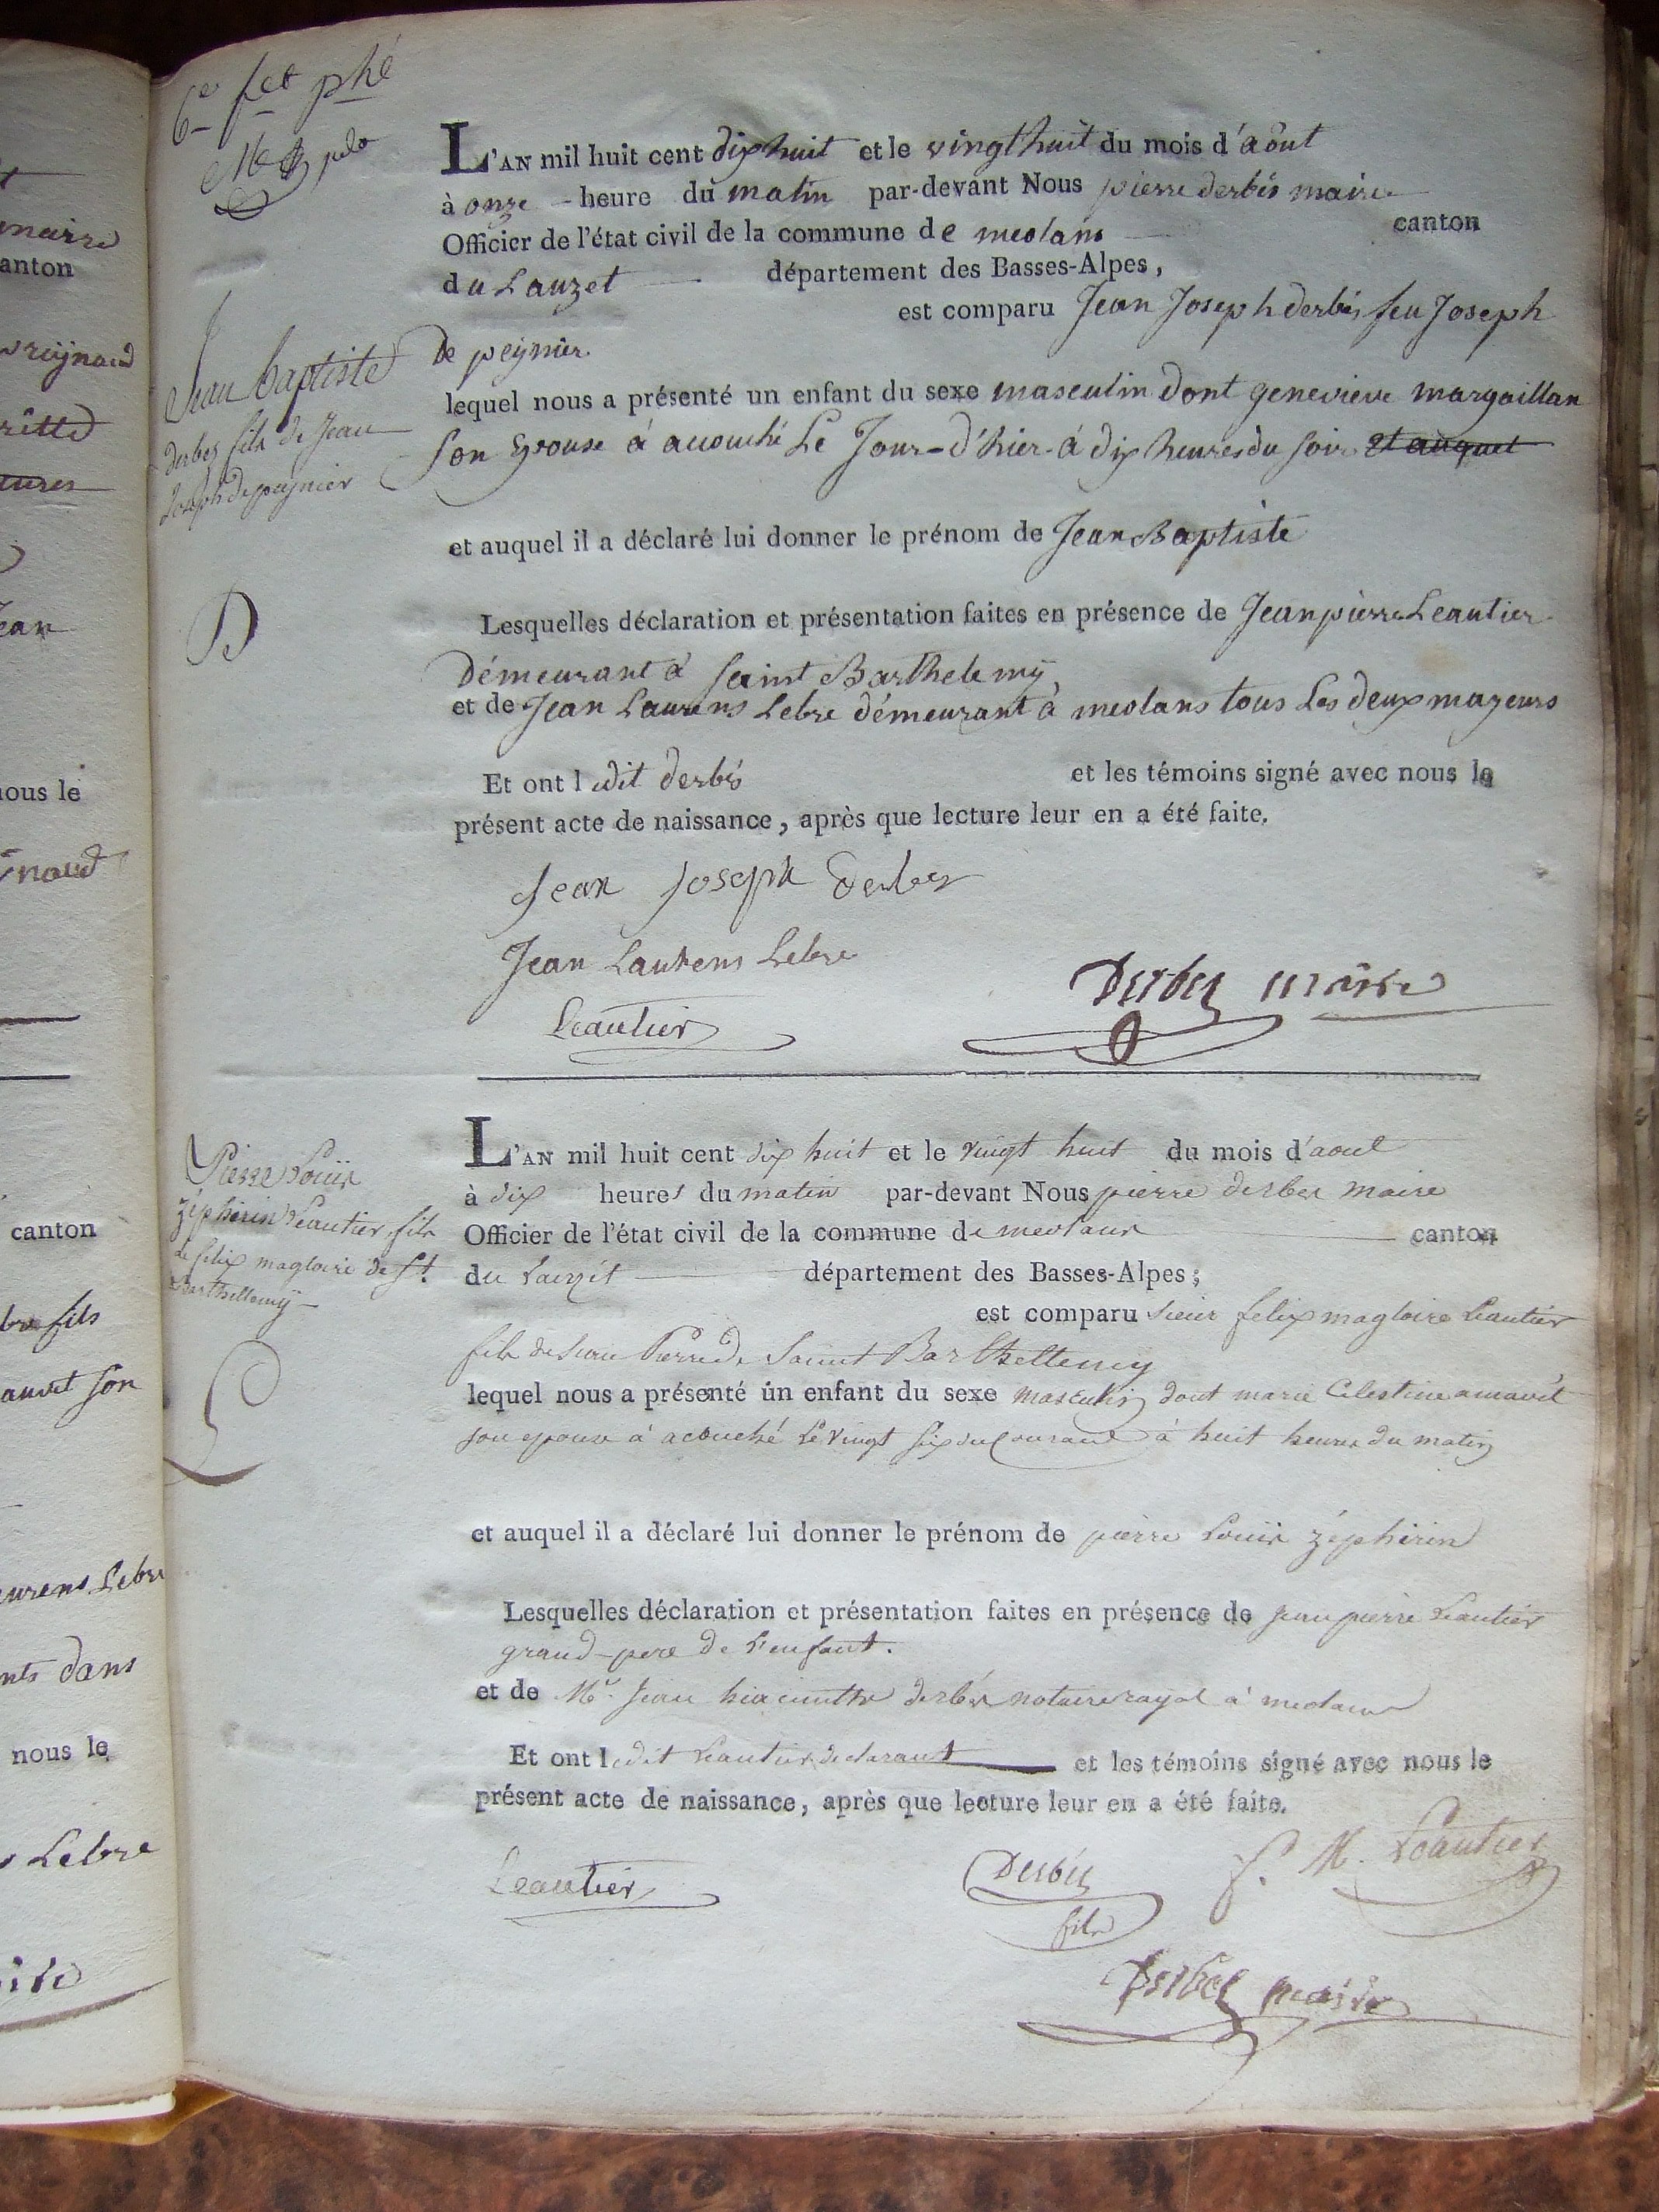 meirre
anton
reijnaud
ritte
ean
nous le
naud
canton
fils
son
urens Lebre
nts dans
nous le
Lebre
6e fet phé
L'AN mil huit cent dix huit et le vingt huit du mois d'août
à onze heure du matin par-devant Nous pierre derbés maire
Officier de l'état civil de la commune de meolans canton
du Lauzet département des Basses-Alpes,
est comparu Jean Joseph derbés feu Joseph
De peynier
lequel nous a présenté un enfant du sexe masculin dont genevieve margaillan
son Epouse à acouché Le Jour-d'hier à dix heures du soir et auquel
et auquel il a déclaré lui donner le prénom de Jean Baptiste
Lesquelles déclaration et présentation faites en présence de Jean pierre Leautier
Démeurant à saint Barthelemy
et de Jean Laurens Lebre démeurant à meolans tous Les deux majeurs
Et ont ledit derbés et les témoins signé avec nous le
présent acte de naissance, après que lecture leur en a été faite.
Jean baptiste
derbez fils de Jean
Joseph de peynier
D
jean joseph derbez
Jean Laurens Lebre
Leautier
Derbez maire
Pierre Louis
zéphirin Leautier fils
de felix magloire de St.
Barthellemy
L
L'AN mil huit cent dix huit et le vingt huit du mois d'aout
à dix heures du matin par-devant Nous pierre derbez maire
Officier de l'état civil de la commune de meolans canton
du Lauzet département des Basses-Alpes;
est comparu sieur felix magloire Leautier
fils de Jean Pierre de Saint Barthellemy
lequel nous a présenté un enfant du sexe masculin dont marie Celestine
son epouse à acouché le vingt six du Courant à huit heures du matin
et auquel il a déclaré lui donner le prénom de pierre Louis zéphirin
Lesquelles déclaration et présentation faites en présence de jean pierre Leautier
grand-pere de l'enfant.
et de Mr. Jean hiacinthe derbez notaire royal à meolans
Et ont ledit Leautier declarant et les témoins signé avec nous le
présent acte de naissance, après que lecture leur en a été faite.
Leautier
Derbez
fils
f. M. Leautier
Derbez maire